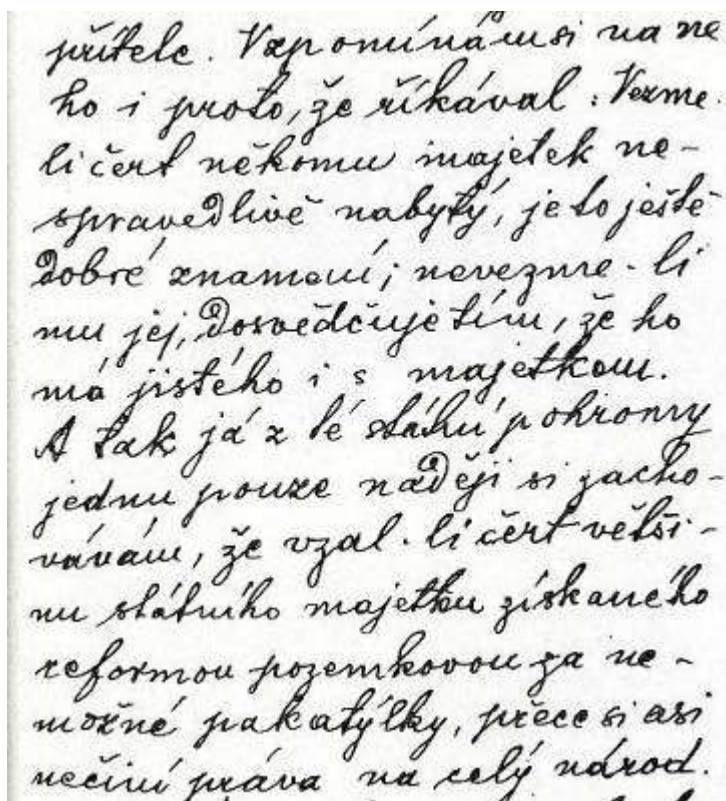 přítele. Vzpomínám si na ne
ho i proto, že říkával: Vezme-
li čert někomu majetek ne-
spravedlivě nabytý, je to ještě
dobré znamení; nevezme-li
mu jej, dosvědčuje tím, že ho
má jistého i s majetkem.
A tak já z té státní pohromy
jednu pouze naději si zacho-
vávám, že vzal-li čert větši-
nu státního majetku získaného
reformou pozemkovou za ne-
možné pakatýlky, přece si asi
nečiní práva na celý národ.